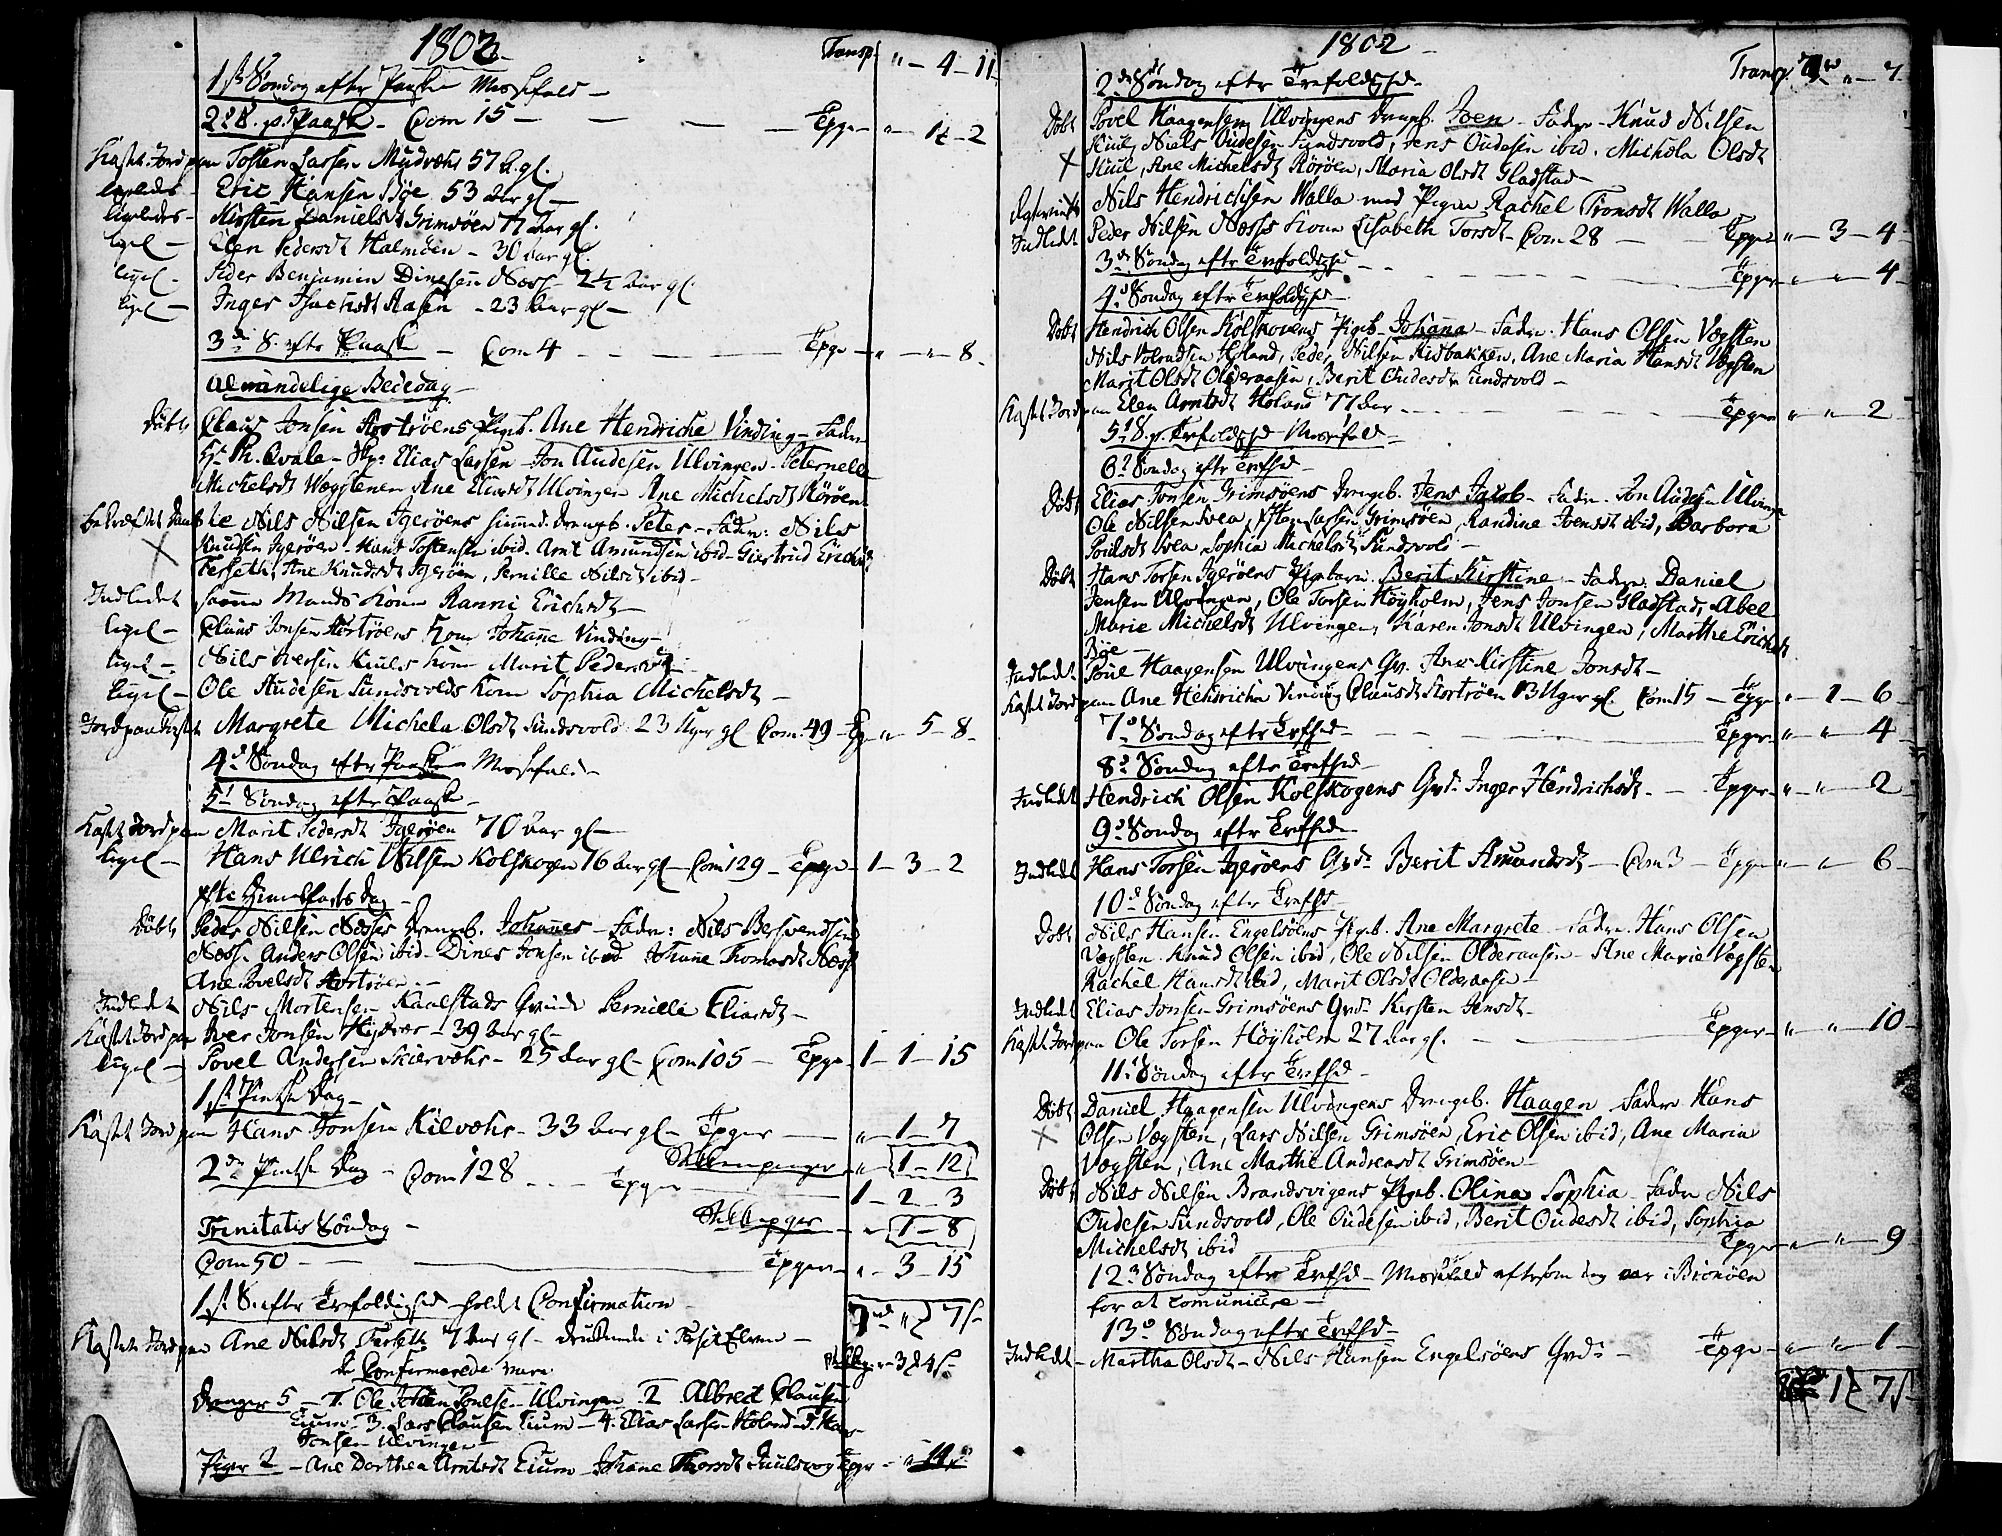 1802
Transp. " - 4 - 11
1st Søndag efter Paaske Messefald -
2d S. p. Paaske - Com 15 - Tpge - " - 1 - 2
Kastet Jord paa Tosten Larsen Mudvæhr 57 Aar gl.
ligeledes - Eric Hansen Søe 53 Aar gl -
ligeledes - Kirsten Danielsdt Grimsøen 77 Aar gl.
ligel - Elen Pedersdt Halmøen - 30 Aar gl.
ligel - Peder Benjamin Dinesen Næss - 2½ Aar gl.
ligel - Inger Isachsdt Aasen - 23 Aar gl -
3de S. eftr Paaske - Com 4 - Tpge - " - " - 8 -
Almindelige Bededag -
Døbt Claus Jonsen Hortrøens Pigeb. Ane Hendriche Vinding - Fadr
Hr Ph. Qvale - Elias Larsen - Jon Audesen Ulvingen - Peternelle
Michelsdt Wægstenen Ane Eliasdt Ulvingen Ane Michelsdt Rørøen
Nils Nilsen Igerøens Drengb. Peter - Fadr: Nils
Knudsen Igerøen - Hans Tostensen ibid - Arnt Amundsen ibid - Giertrud Erichsdt
Forseth, Ane Knudsdt Igerøen, Pernille Nilsdt ibid -
Indledet samme Mands Kone Ranni Erichsdt -
ligel - Claus Jonsen Hortrøens Kone Johanne Vinding -
ligel - Nils Iversen Kuuls Kone Marit Pedersdt -
ligel - Ole Audesen Sundsvolds Kone Sophia Michelsdt -
Jord paa kastet Margrete Michela Olsdt Sundsvold 23 Uger gl Com 49 - Tpge " 5 - 8 -
4d Søndag eftr Paaske Messefald -
5t Søndag eftr Paaske -
Kastet Jord paa Marit Pedersdt Igerøen 70 Aar gl -
ligel - Hans Ulrich Nilsen Kolskogen 16 Aar gl - Com 129 - Tpge - 1 - 3 - 2
Himelfarts Dag -
Døbt Peder Nilsen Næsses Drengb. Johannes - Fadr: Nils Bersvendsen
Næss - Anders Olsen ibid - Dines Jonsen ibid Johane Thomasdt Næss
Ane Povelsdt Hortrøen -
Indledet Nils Mortensen Kaalstads Qvinde Pernille Eliasdt -
Kastet Jord paa Iver Jonsen - 39 Aar gl -
ligel - Povel Andersen Skiervæhr - 25 Aar gl - Com 105 - Tpge 1 - 1 - 15
1st Pintse Dag -
Kastet Jord paa Hans Jonsen Kilvæhr - 33 Aar gl - Tpger - " - 1 - 7
" - 1 - 12
2de Pintse Dag - Com 128 - Tpger 1 - 2 - 3
Trinitatis Søndag - " - 1 - 8
Com 50 - Tpger - " - 3 - 15
1st S. eftr Trefoldighed holdt Confirmation
7 " 7 s
Kastet Jord paa Ane Nilsdt Forseth 7 Aar gl - druknede i Elven -
de Confirmerede vare
Drenger 5 - 1. Ole Poulsen Ulvingen 2 Albrect Clausen
Eium 3. Lars Clausen Eium - 4. Elias Larsen Høland - 5 Hans
Jonsen Ulvingen -
Piger 2 - Ane Dorthea Arntsdt Eium - Johane Thorsdt Tpge -
1802 -
2de Søndag eftr Trefoldighd Transp. " - 7
Døbt Povel Haagensen Ulvingens Drengb. Joen - Fadr - Knud Nilsen
Kuul, Niels Oudesen Sundsvold, Jens Oudesen ibid. Michola Olsdt
Kuul, Ane Michelsdt Rørøen, Maria Olsdt Gladstad -
Nils Hendrichsen Walla med Pigen Rachel Tronsdt Walla
Indledt Peder Nilsen Næsses Kone Lisabeth Torsdt - Com 28 - Tpger " - 3 - 4 -
3de Søndag eftr Trefoldighd - Tpger " - " - 4 -
4d Søndag eftr Trefoldighd -
Døbt Hendrich Olsen Kolskovens Pigeb. Johanna - Fadr. Hans Olsen Vægsten
Nils Volradsen Høland, Peder Nilsen Ridbakken, Ane Maria Hansdt Vægsten
Marit Olsdt Olderaasen, Berit Oudesdt Sundsvold -
Kastet Jord paa Elen Arntsdt Høland 77 Aar - Tpger " " - 2
5t S. p. Trefoldighd Messefald -
6t Søndag eftr Trefhd -
Døbt Elias Jonsen Grimsøens Drengeb. Jens Jacob - Fadr. Jon Audesen Ulvingen
Ole Nilsen Svea, Larsen Grimsøen, Randine Joensdt ibid, Barbora
Poulsdt Svea, Sophia Michelsdt Sundsvold -
Døbt Hans Torsen Igerøens Pigebarn. Berit Kirstine - Fadr. Daniel
Jensen Ulvingen, Ole Torsen Høyholm, Jens Jonsen Gladstad, Abel
Marie Michelsdt Ulvingen, Karen Jonsdt Ulvingen, Marthe Erichsdt
Søe -
Indledt Poul Haagensen Ulvingens Qv. Ane Kirstine Jonsdt -
Kastet Jord paa Ane Hendricha Vinding Clausdt Hortrøen 13 Uger gl. Com 15 - Tpge " - 1 - 6
7d Søndag eftr Trefhd - Tpger " " - 4 -
8d Søndag eftr Trefhd -
Indledt Hendrich Olsen Kolskogens Qvd. Inger Hendrichsdt - Tpger - " - " - 2
9d Søndag eftr Trefhd -
Indledt Hans Torsen Igerøens Qvd. Berit Amundsdt - Com 3 - Tpge " - " - 6 -
10d Søndag eftr Trefhd -
Døbt Nils Hansen Engelsøens Pigeb. Ane Margrete - Fadr. Hans Olsen
Vægsten - Knud Olsen ibid, Ole Nilsen Olderaasen - Ane Marie Vægsten
Rachel Hansdt ibid, Marit Olsdt Olderaasen -
Indledt Elias Jonsen Grimsøens Qvd. Kirsten Jensdt -
Kastet Jord paa Ole Torsen Høyholm 27 Aar gl. - Tpger - " " - 10 -
11t Søndag eftr Trefhd -
Døbt Daniel Haagensen Ulvingens Drengeb. Haagen Fadr Hans
Olsen Vægsten, Lars Nilsen Grimsøen, Eric Olsen ibid, Ane Maria
Vægsten, Ane Marthe Andreasdt Grimsøen -
Døbt Nils Nilsen Brandsvigens Pigeb. Olina Sophia - Fadr Nils
Oudesen Sundsvold, Ole Oudesen ibid, Berit Oudesdt ibid, Sophia
Michelsdt ibid Tpger - " - 9
12te Søndag eftr Trefhd - Messefald eftersom jeg var i Brønøen
for at comunicere -
13d Søndag eftr Trefhd -
Indledt - Martha Olsdt - Nils Hansen Engelsøens Qvd. - Tpge - " " - 1 -
1 7 s -